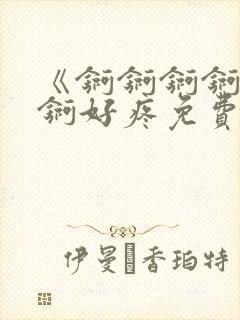 《锕锕锕锕
锕好疼免費
伊曼香珀特